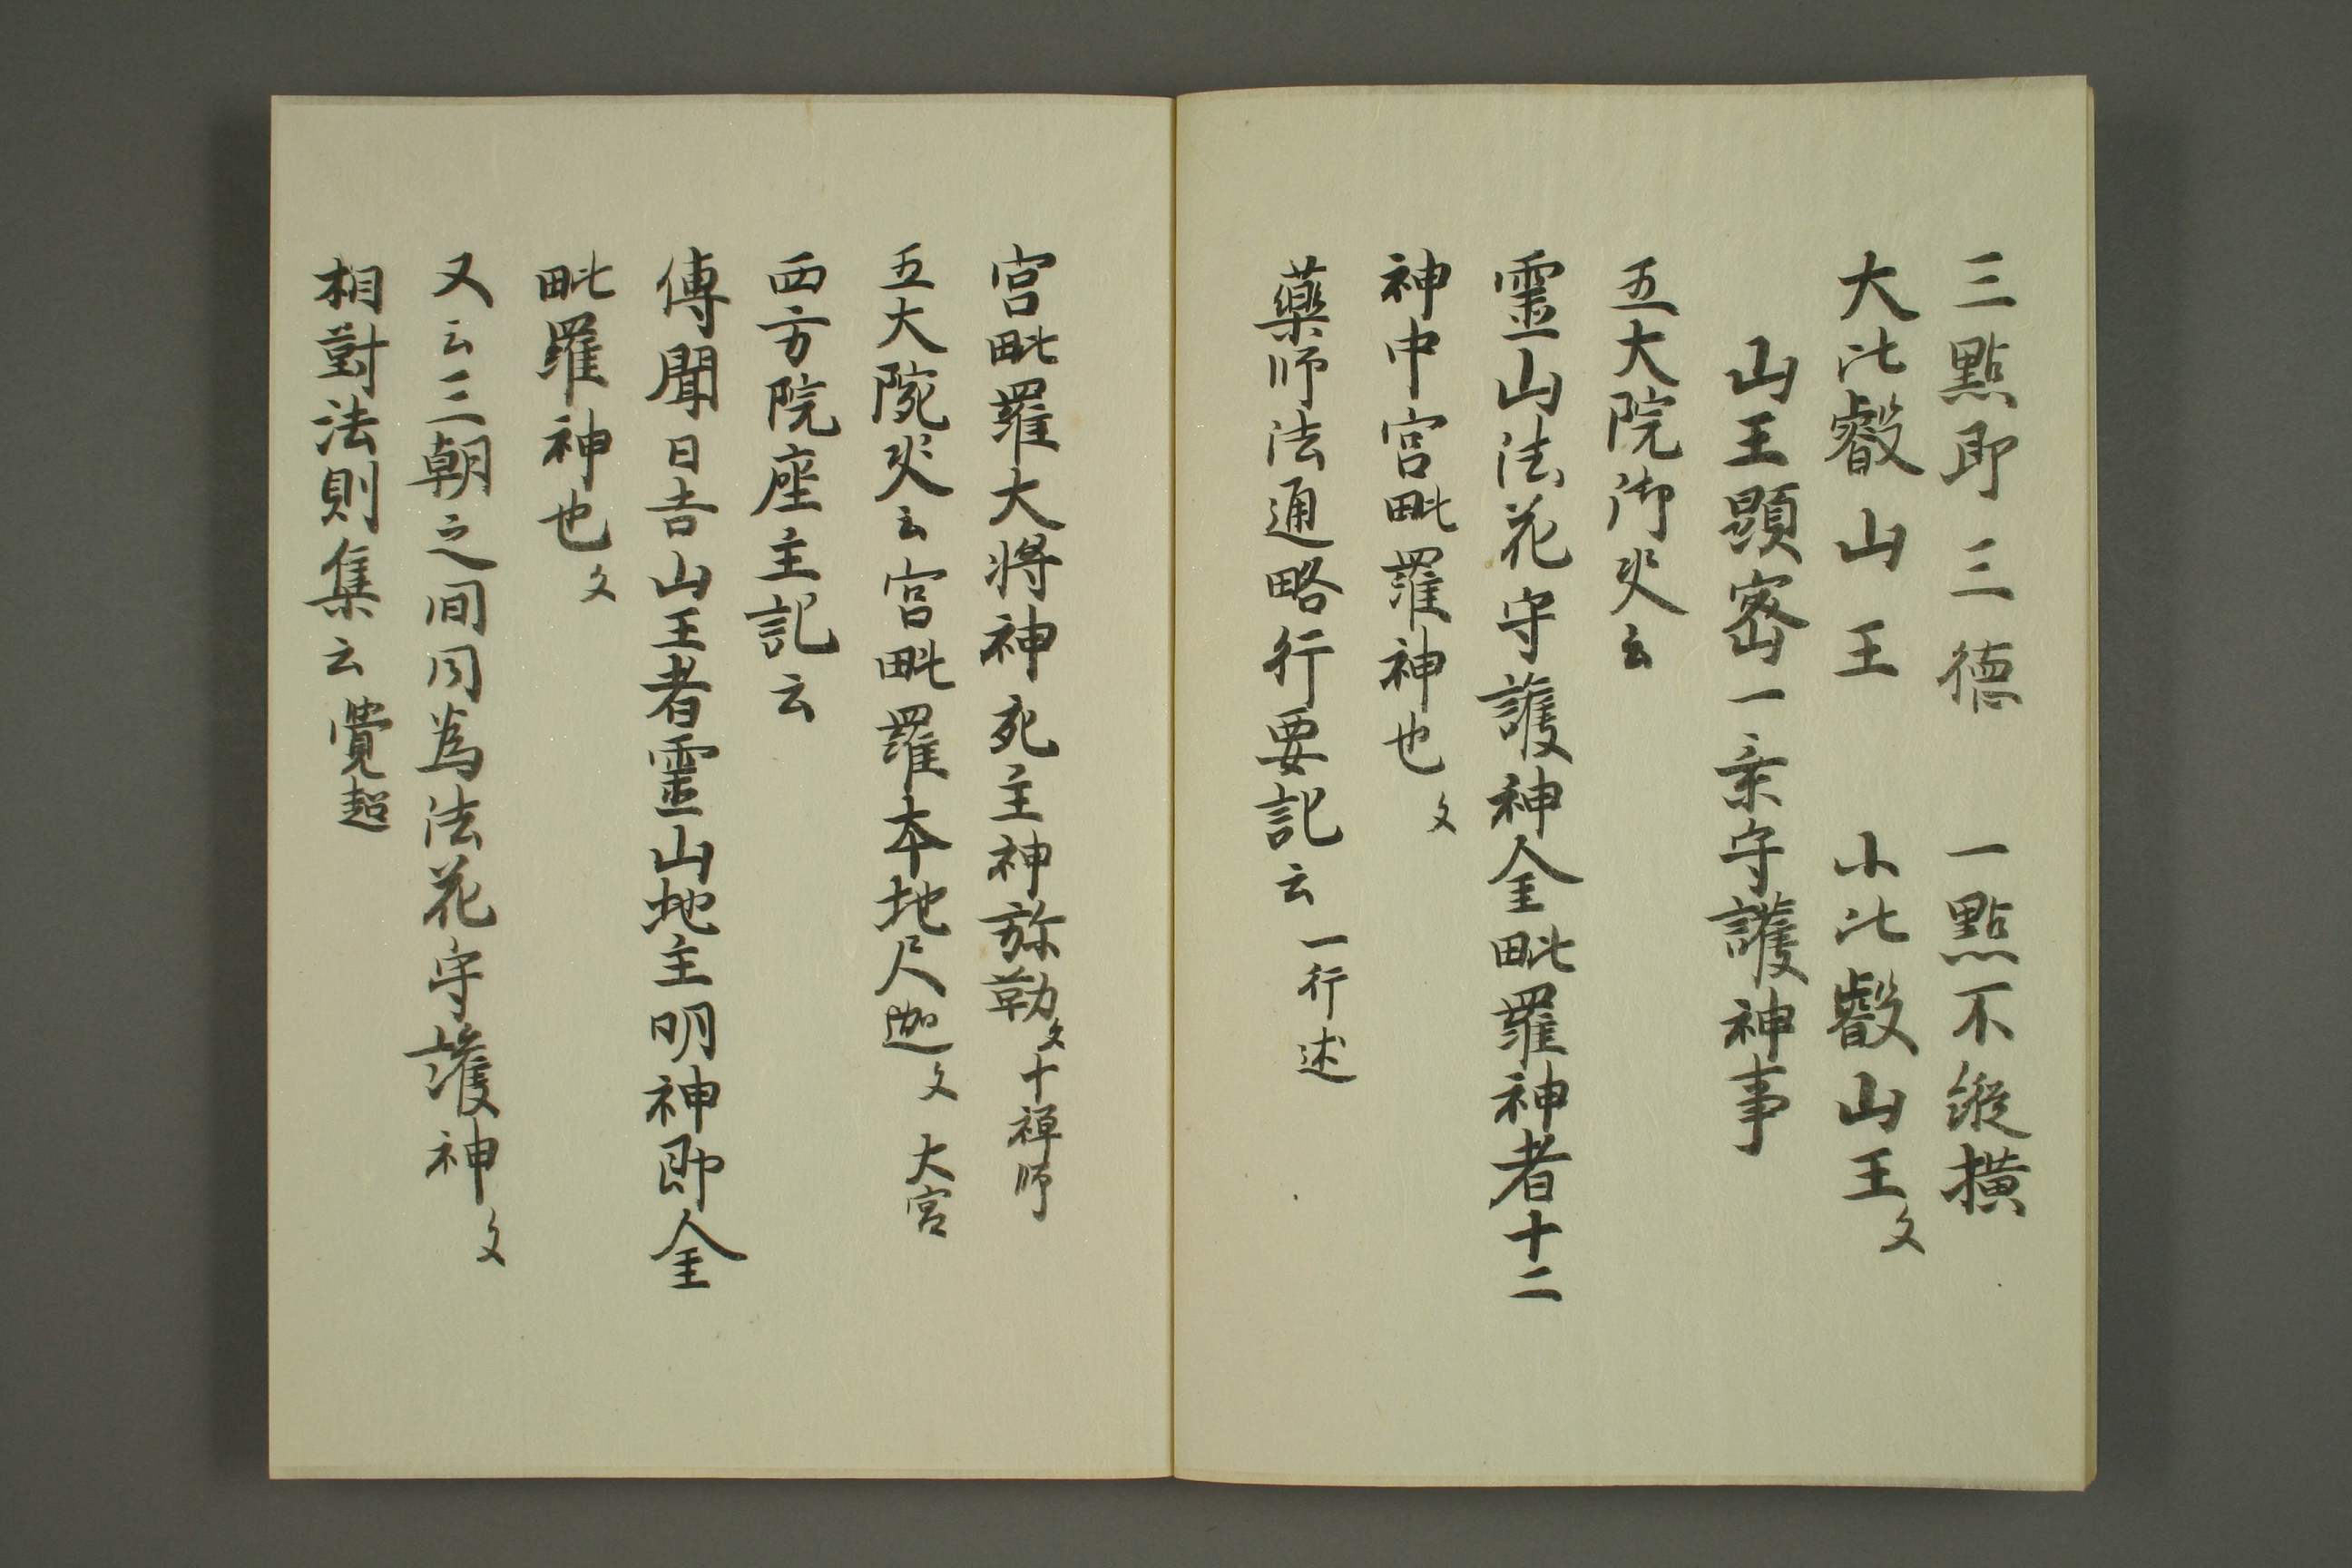 三點即三德　一點不縱横
大比叡山王　小比叡山王文
山王顕密一宗守護神事
五大院御釈云
霊山法花守護神金毗羅神者十二
神中宮毗羅神也文
藥師法通略行要記云 一行述
宮毗羅大将神死主神弥勒文十禅師
五大院釈云宮毗羅本地尺迦文 大宮
西方院座主記云
傳聞日吉山王者霊山地主明神即金
毗羅神也文
又云三朝之间同為法花守護神文
相對法則集云 覺超